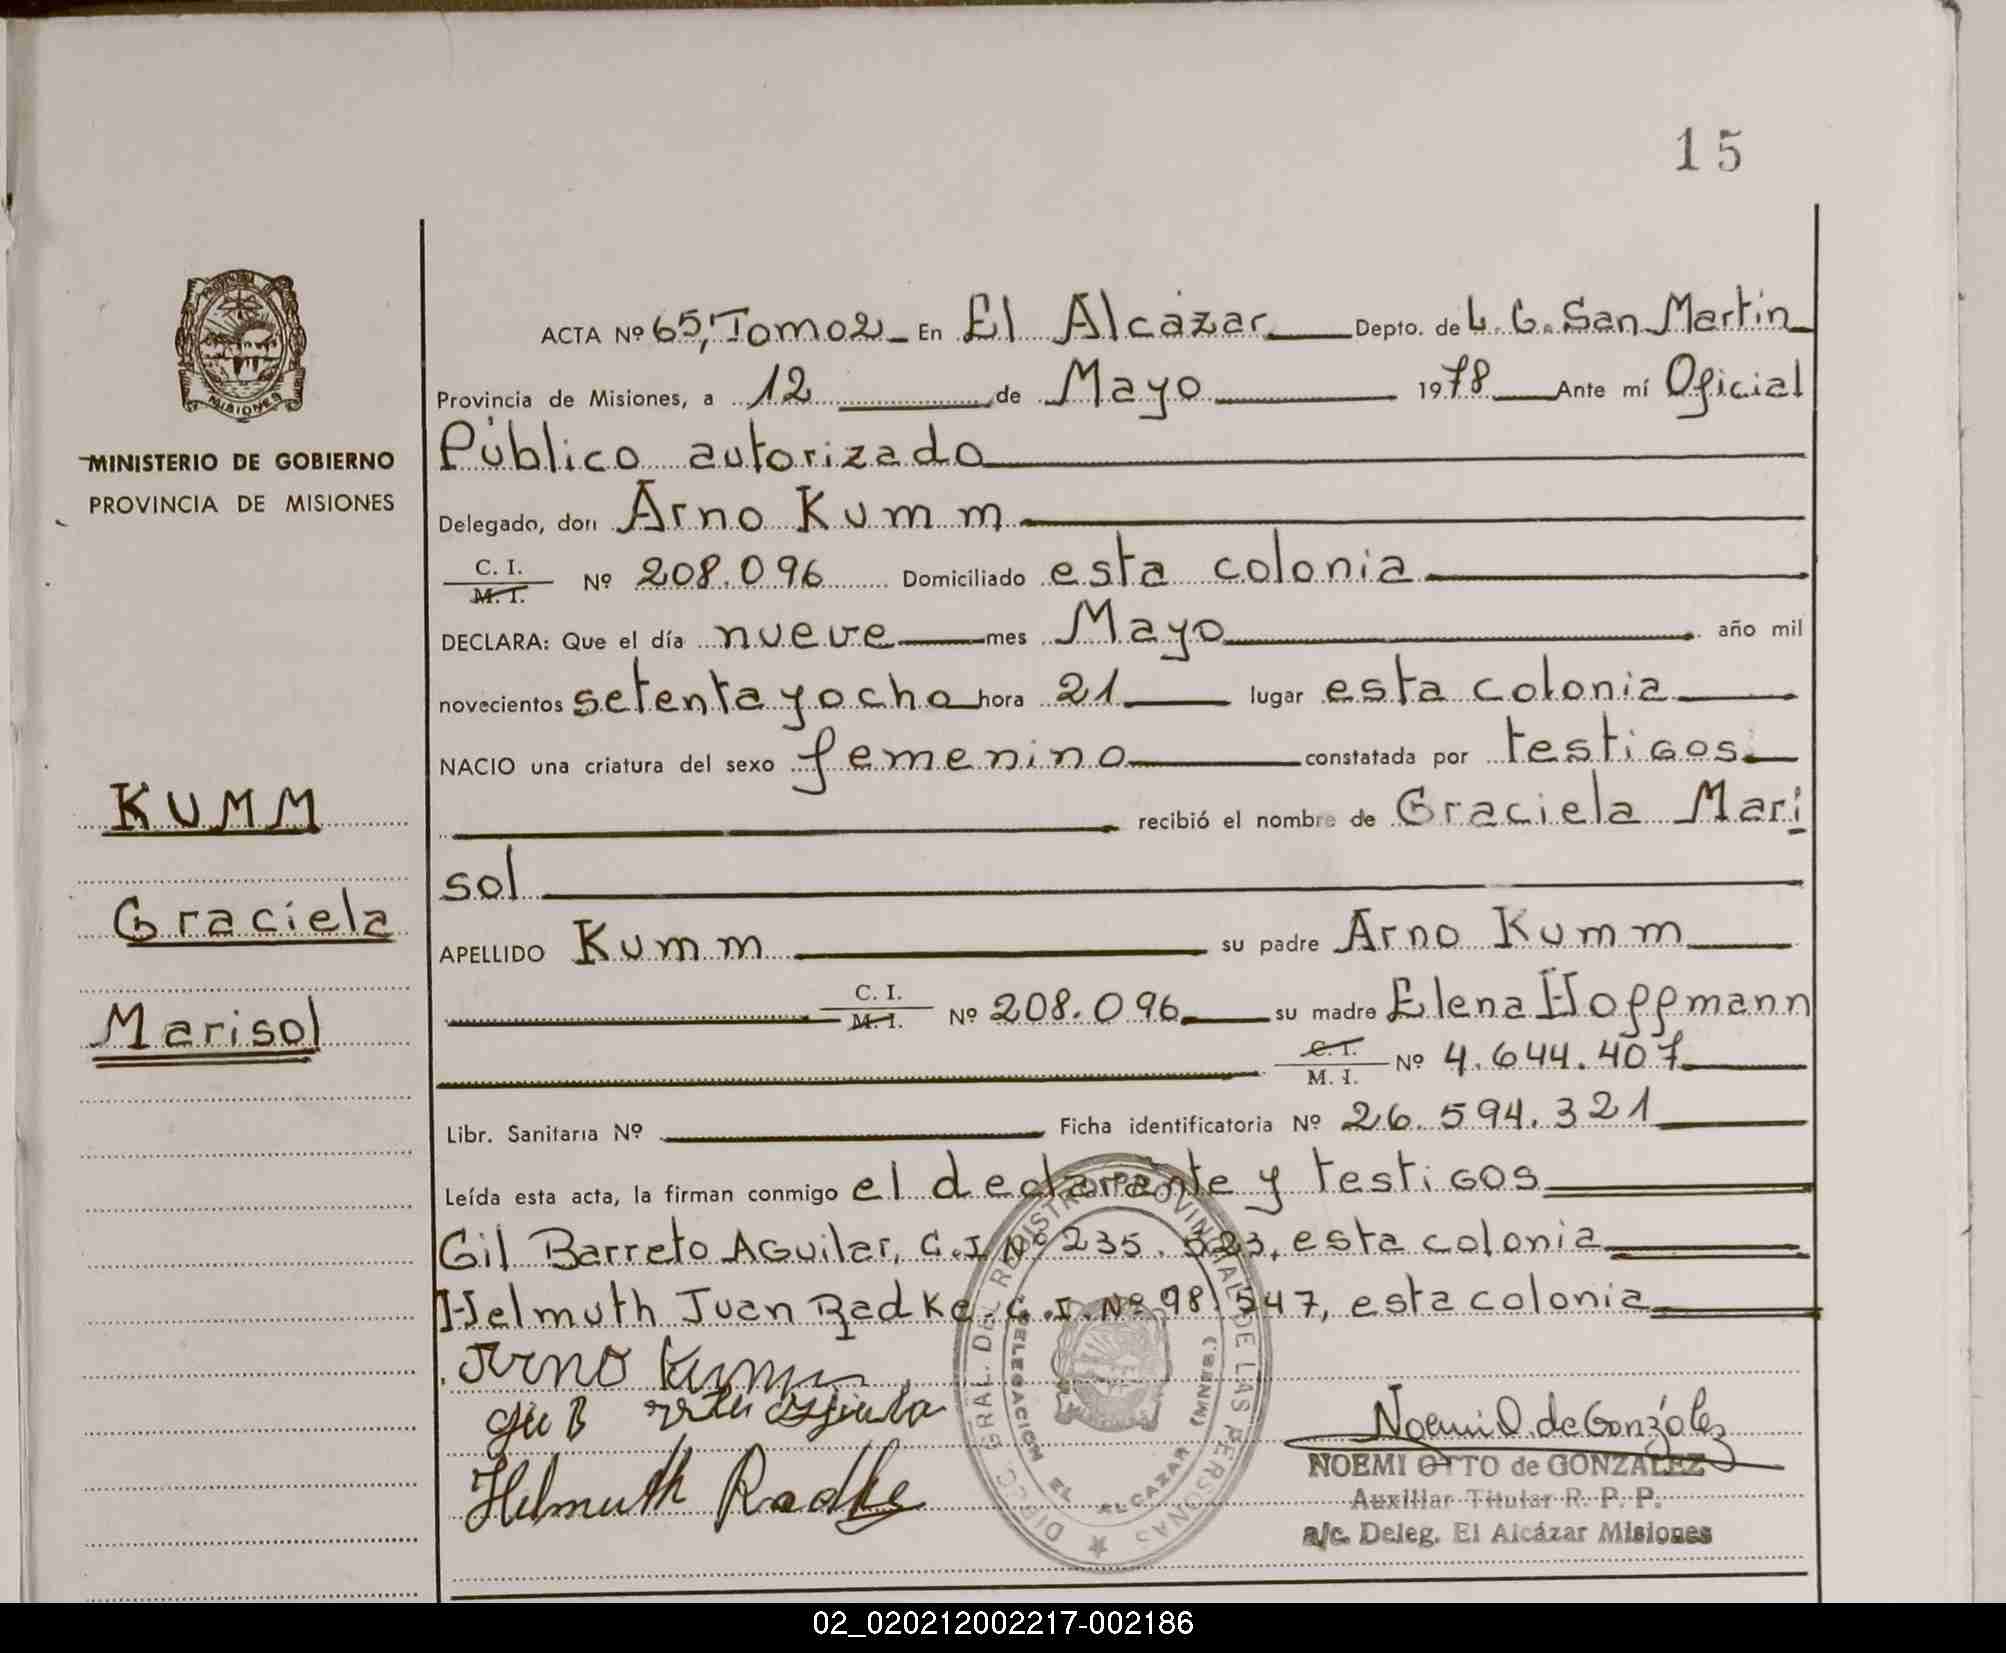 15
MINISTERIO DE GOBIERNO
PROVINCIA DE MISIONES
KUMM
Graciela
Marisol
ACTA Nº 65, Tomo 2 En El Alcázar Depto. de L. G. San Martín
Provincia de Misiones, a 12 de Mayo 1978 Ante mí Oficial
Público autorizado
Delegado, don Arno Kumm
C. I.
M. I. Nº 208.096 Domiciliado esta colonia
DECLARA: Que el día nueve mes Mayo año mil
novecientos setenta y ocho hora 21 lugar esta colonia
NACIO una criatura del sexo femenino constatada por testigos.
recibió el nombre de Graciela Mari
sol
APELLIDO Kumm su padre Arno Kumm
C. I.
M. I. Nº 208.096 su madre Elena Hoffmann
C. I.
M. I. Nº 4.644.407
Libr. Sanitaria Nº Ficha identificatoria Nº 26.594.321
Leída esta acta, la firman conmigo el declarante y testigos
Gil Barreto Aguilar, C.I Nº 235. 323, esta colonia
Helmuth Juan Radke. C.I. Nº 98.547, esta colonia
Arno Kumm
Helmuth Radke
Noemi O de González
NOEMI OTTO de GONZALEZ
Auxiliar Titular R. P. P.
a/c. Deleg. El Alcázar Misiones
DIREC. GRAL. DEL REGISTRO PROVINCIAL DE LAS PERSONAS
DELEGACION EL ALCAZAR (MNES.)
02_020212002217-002186